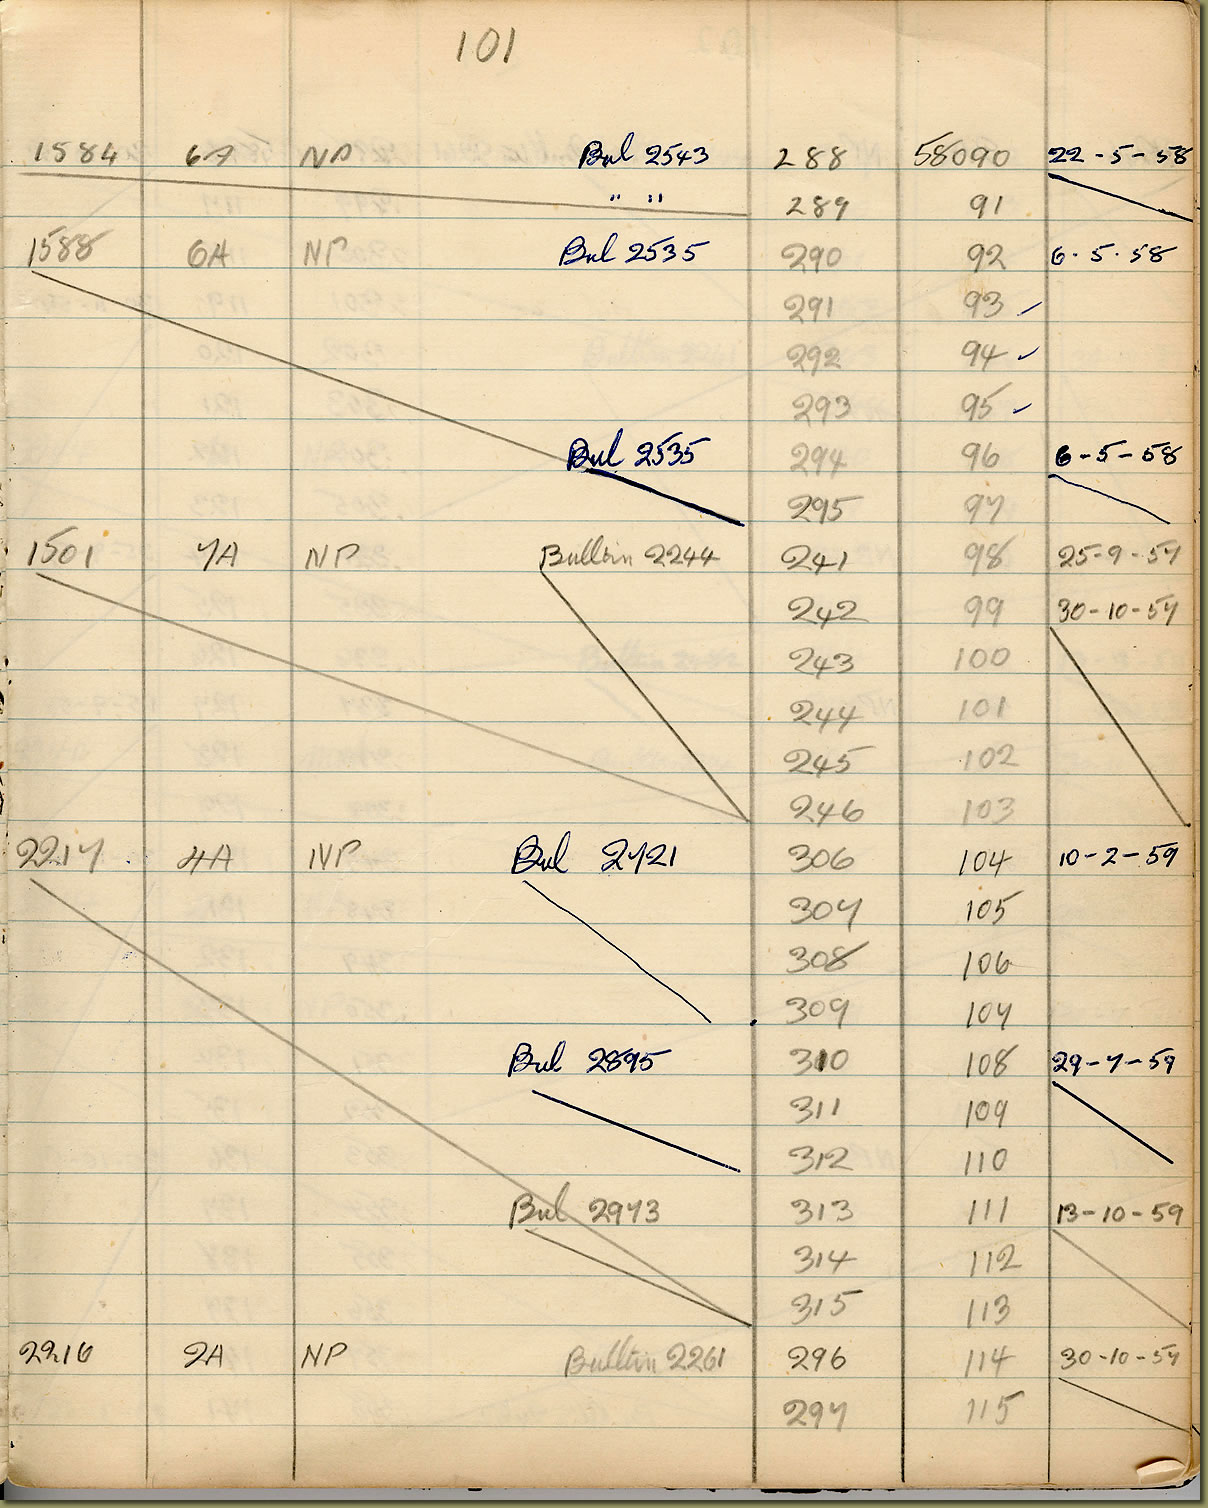 101
1584 6A NP Bul 2543 288 58090 22-5-58
" " 289 91
1588 6A NP Bul 2535 290 92 6.5.58
291 93 ✓
292 94 ✓
293 95 ✓
Bul 2535 294 96 6-5-58
295 97
1501 7A NP Bulltin 2244 241 98 25-9-57
242 99 30-10-57
243 100
244 101
245 102
246 103
2217 4A NP Bul 2721 306 104 10-2-59
307 105
308 106
309 107
Bul 2895 310 108 29-7-59
311 109
312 110
Bul 2973 313 111 13-10-59
314 112
315 113
2216 2A NP Bulltin 2261 296 114 30-10-57
297 115